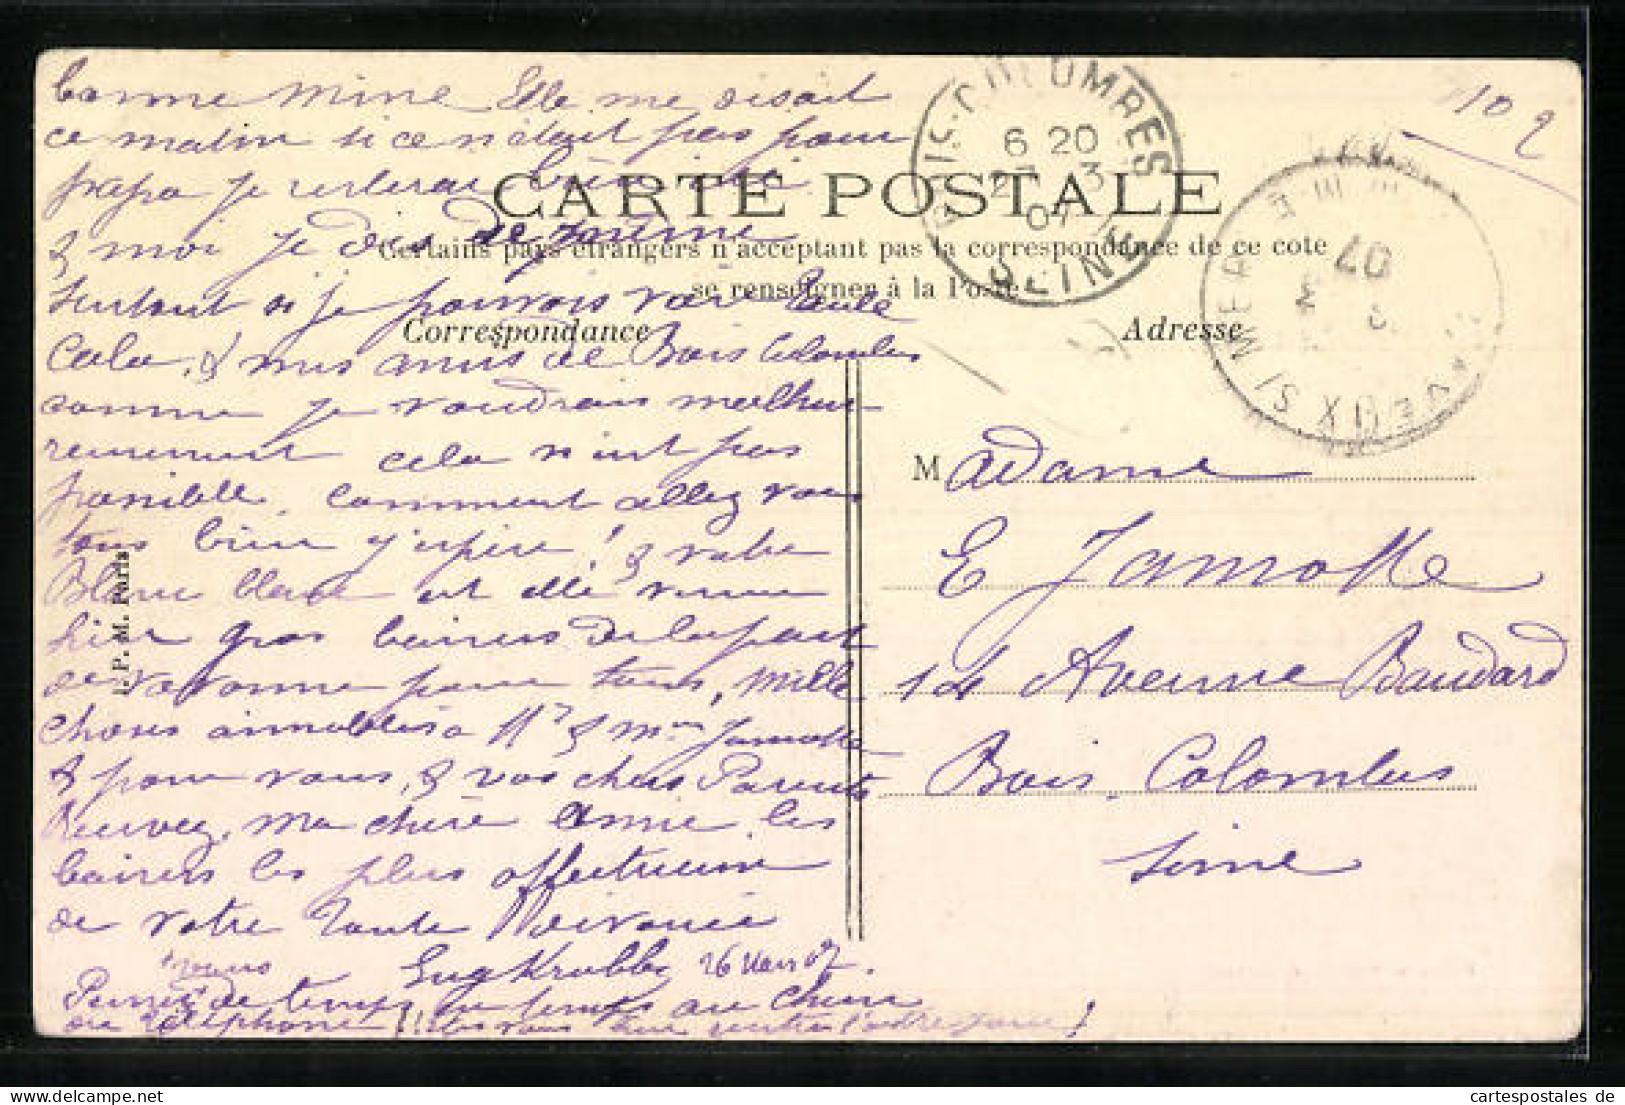 bonne mine Elle me disait
ce matin si ce n'était pas pour
papa je resterai bien ici
& moi je dis de même
surtout si je pouvais voir
Colo, & mes amis de Bois Colombes
comme je voudrais malheu
reusement cela n'est pas
possible. comment allez vous
tous bien j'espère! & votre
Blanc est elle venue
hier gros baisers de la part
de pour tous, Mille
choses aimables à Mr & Mme Jamotte
& pour vous, & vos chers Parents
Recevez, ma chère Annie les
baisers les plus affectueux
de votre Tante
26 Mars 07.
Pensez de temps en temps au
du téléphone!
CARTE POSTALE
Certains pays étrangers n'acceptant pas la correspondance de ce coté
se renseigner à la Poste
Correspondance
Adresse
J. P. M. Paris
BOIS-COLOMBES
6 20
27 3
07
SEINE
07
102
Madame
E Jamotte
Avenue Baudard
Bois. Colombes
Seine
www.cartespostales.de
cartespostales de